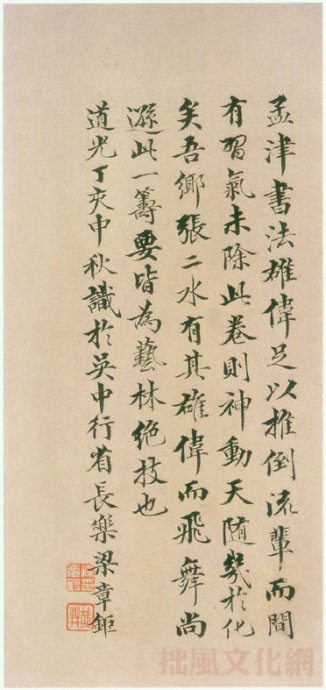 孟津書法雄偉足以推倒流輩而間
有習氣未除此卷則神動天隨幾於化
矣吾鄉張二水有其雄偉而飛舞尚
遜此一籌要皆為藝林絕技也
道光丁亥中秋識於吳中行省長樂梁章鉅
拙風文化網